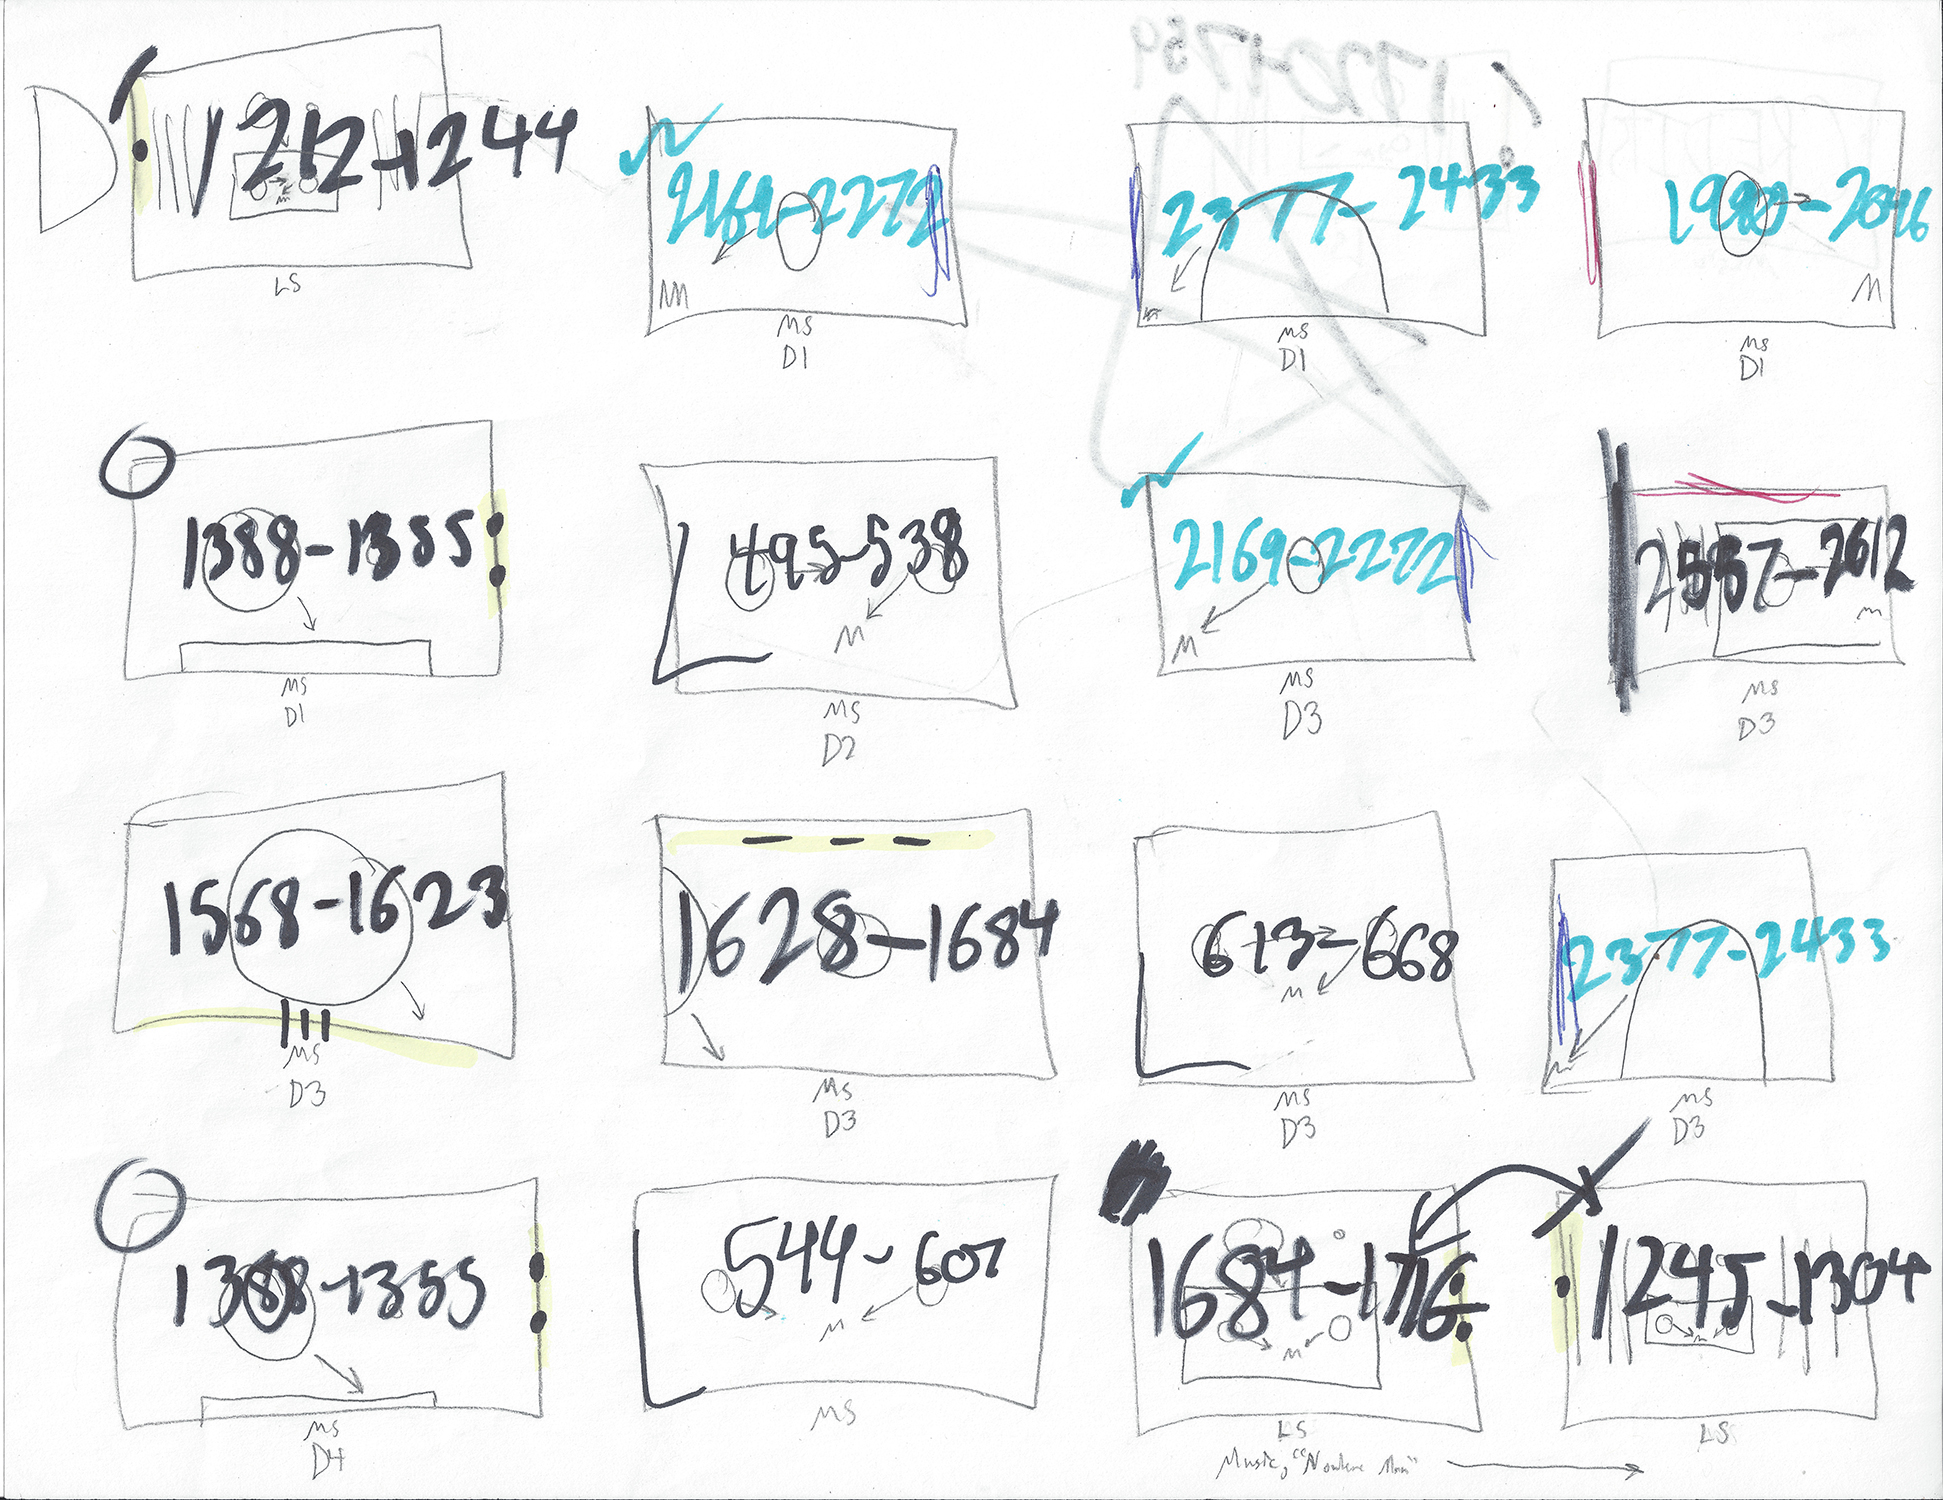 1212-1244
LS
2169-2272
M
MS
D1
2377-2433
M
MS
D1
1980-2046
M
MS
D1
1388-1355
MS
D1
495-538
M
MS
D2
2169-2272
M
MS
D3
2557-2612
M
MS
D3
1568-1623
MS
D3
1628-1684
MS
D3
613-668
M
MS
D3
2377-2433
M
MS
D3
1388-1355
MS
D4
544-607
M
MS
1684-1716
M
LS
1245-1304
M
LS
Music, "Nowhere Man"